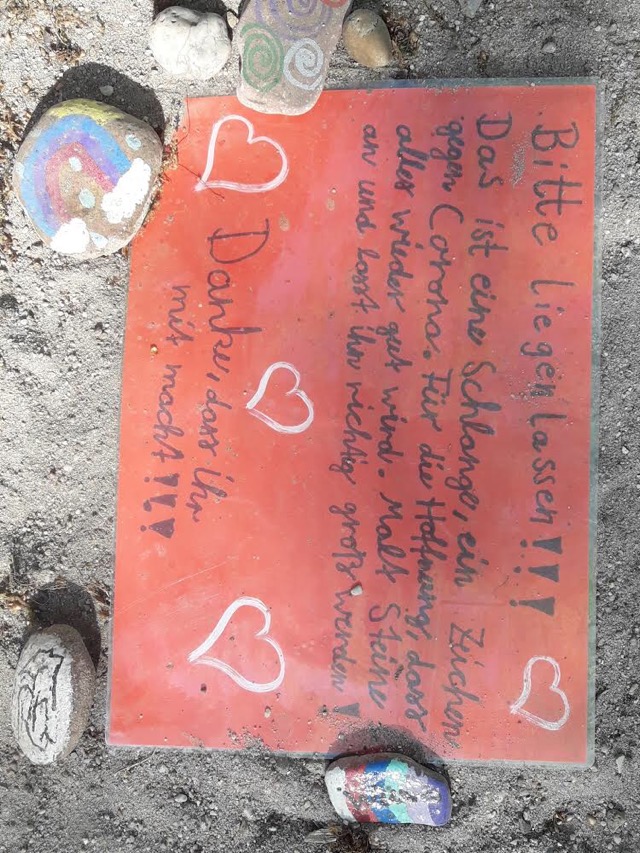 Bitte Liegen Lassen!!!
Das ist eine Schlange, ein Zeichen
gegen Corona. Für die Hoffnung, dass
alles wieder gut wird. Malt Steine
an und lasst ihn richtig groß werden!
Danke, dass ihr
mit macht!!!